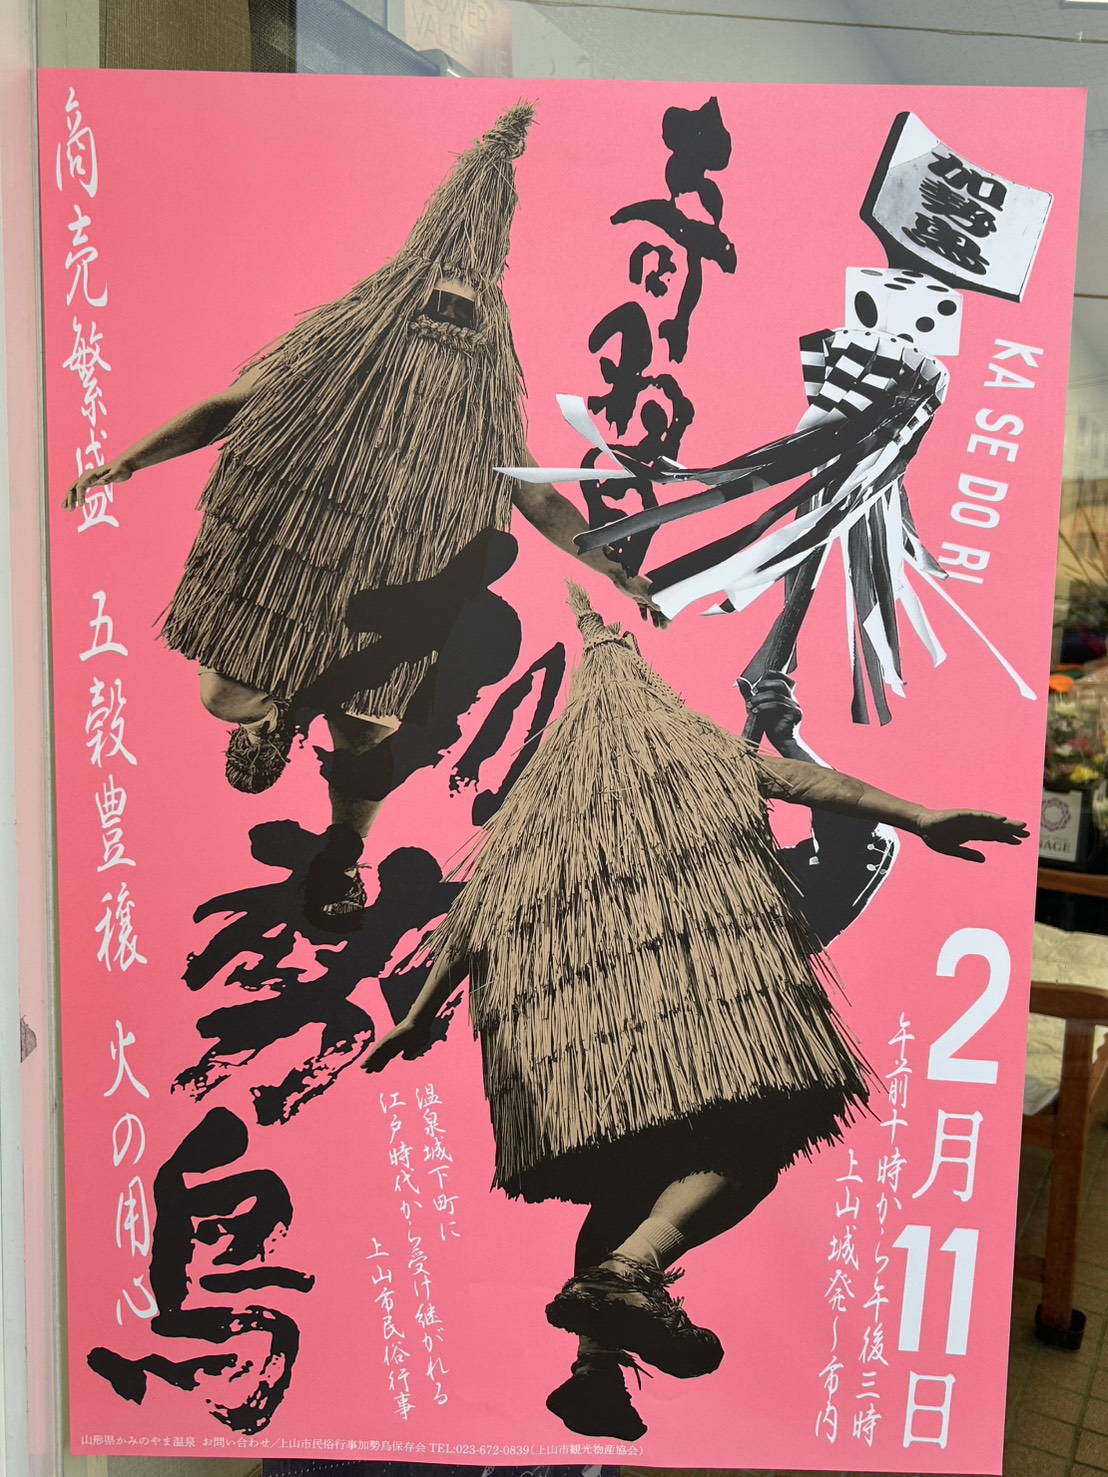 奇習
加勢鳥
加勢鳥
KA SE DO RI
2月11日
午前十時から午後三時
上山城発〜市内
商売繁盛 五穀豊穣 火の用心
温泉城下町に
江戸時代から受け継がれる
上山市民俗行事
山形県かみのやま温泉 お問い合わせ/上山市民俗行事加勢鳥保存会 TEL:023-672-0839(上山市観光物産協会)